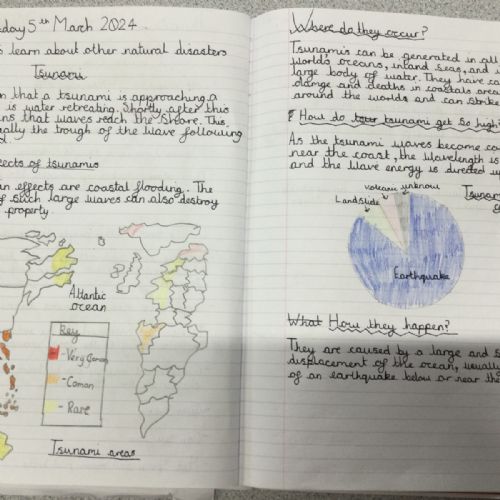 day 5th March 2024
learn about other natural disasters
Tsunami
n that a tsunami is approaching a
is water retreating. Shortly after this
ns that waves reach the shore. This
ally the trough of the wave following
ects of tsunamis
in effects are coastal flooding. The
of such large waves can also destroy
property.
Atlantic
ocean
Key
- Very Coman
- Coman
- Rare
Tsunami areas
Where do they occur?
Tsunamis can be generated in all
worlds oceans, inland seas, and
large body of water. They have ca
damge and deaths in coastals areas
around the worlds and can strike
How do tsunami get so high?
As the tsunami waves become co
near the coast, the wavelength is
and the wave energy is directed up
Tsuna
Volcanic unknow
Landslide
Earthquake
What How they happen?
They are caused by a large and s
displacement of the ocean, usually
of an earthquake below or near th